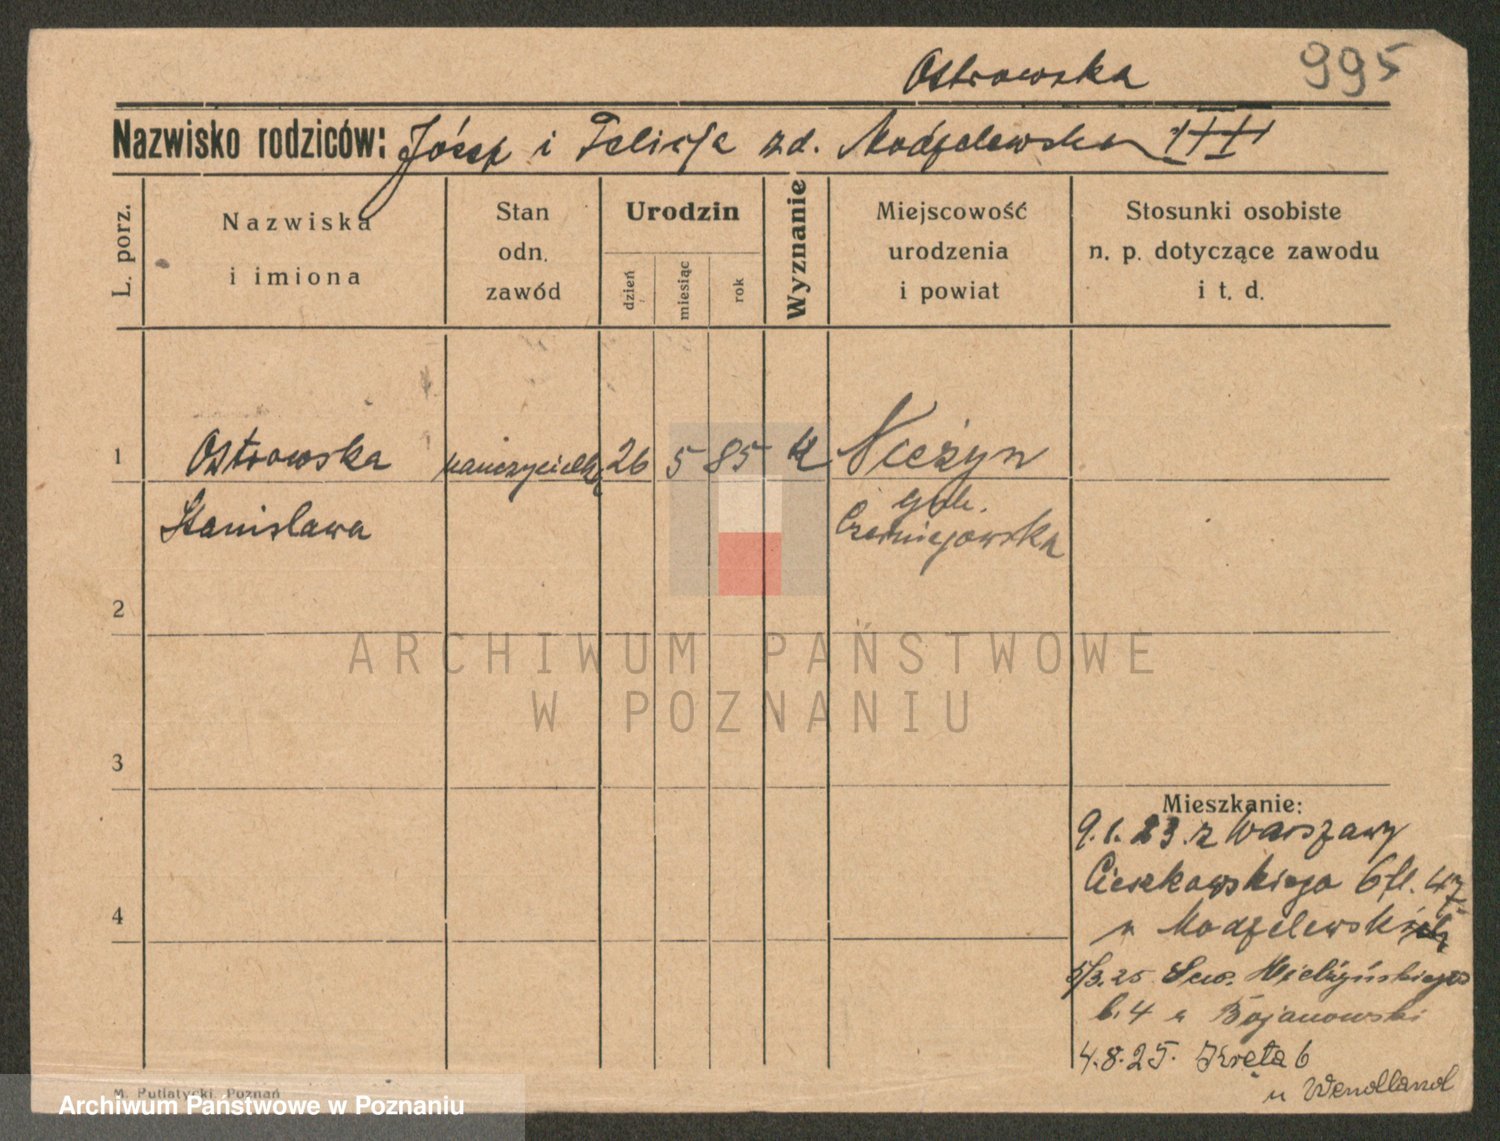 Ostrowska 995
Nazwisko rodziców: Józef i Felicja zd. Modzelewska III
L. porz.
Nazwiska
i imiona
Stan
odn.
zawód
Urodzin
dzień
miesiąc
rok
Wyznanie
Miejscowość
urodzenia
i powiat
Stosunki osobiste
n. p. dotyczące zawodu
i t. d.
1 Ostrowska nauczycielka 26 5 85 k Nieżyn
Stanisława gub.
Czerniejowska
2
3
4
ARCHIWUM PAŃSTWOWE
W POZNANIU
Mieszkanie:
9.1.23. z Warszawy
Cieszkowskiego 6
u Modzelewski
5/3.25 Sew. Mielżyńskiego
b. 4 u Bojanowski
4.8.25. Kręta 6
u Wendland
M. Putiatycki, Poznań
Archiwum Państwowe w Poznaniu